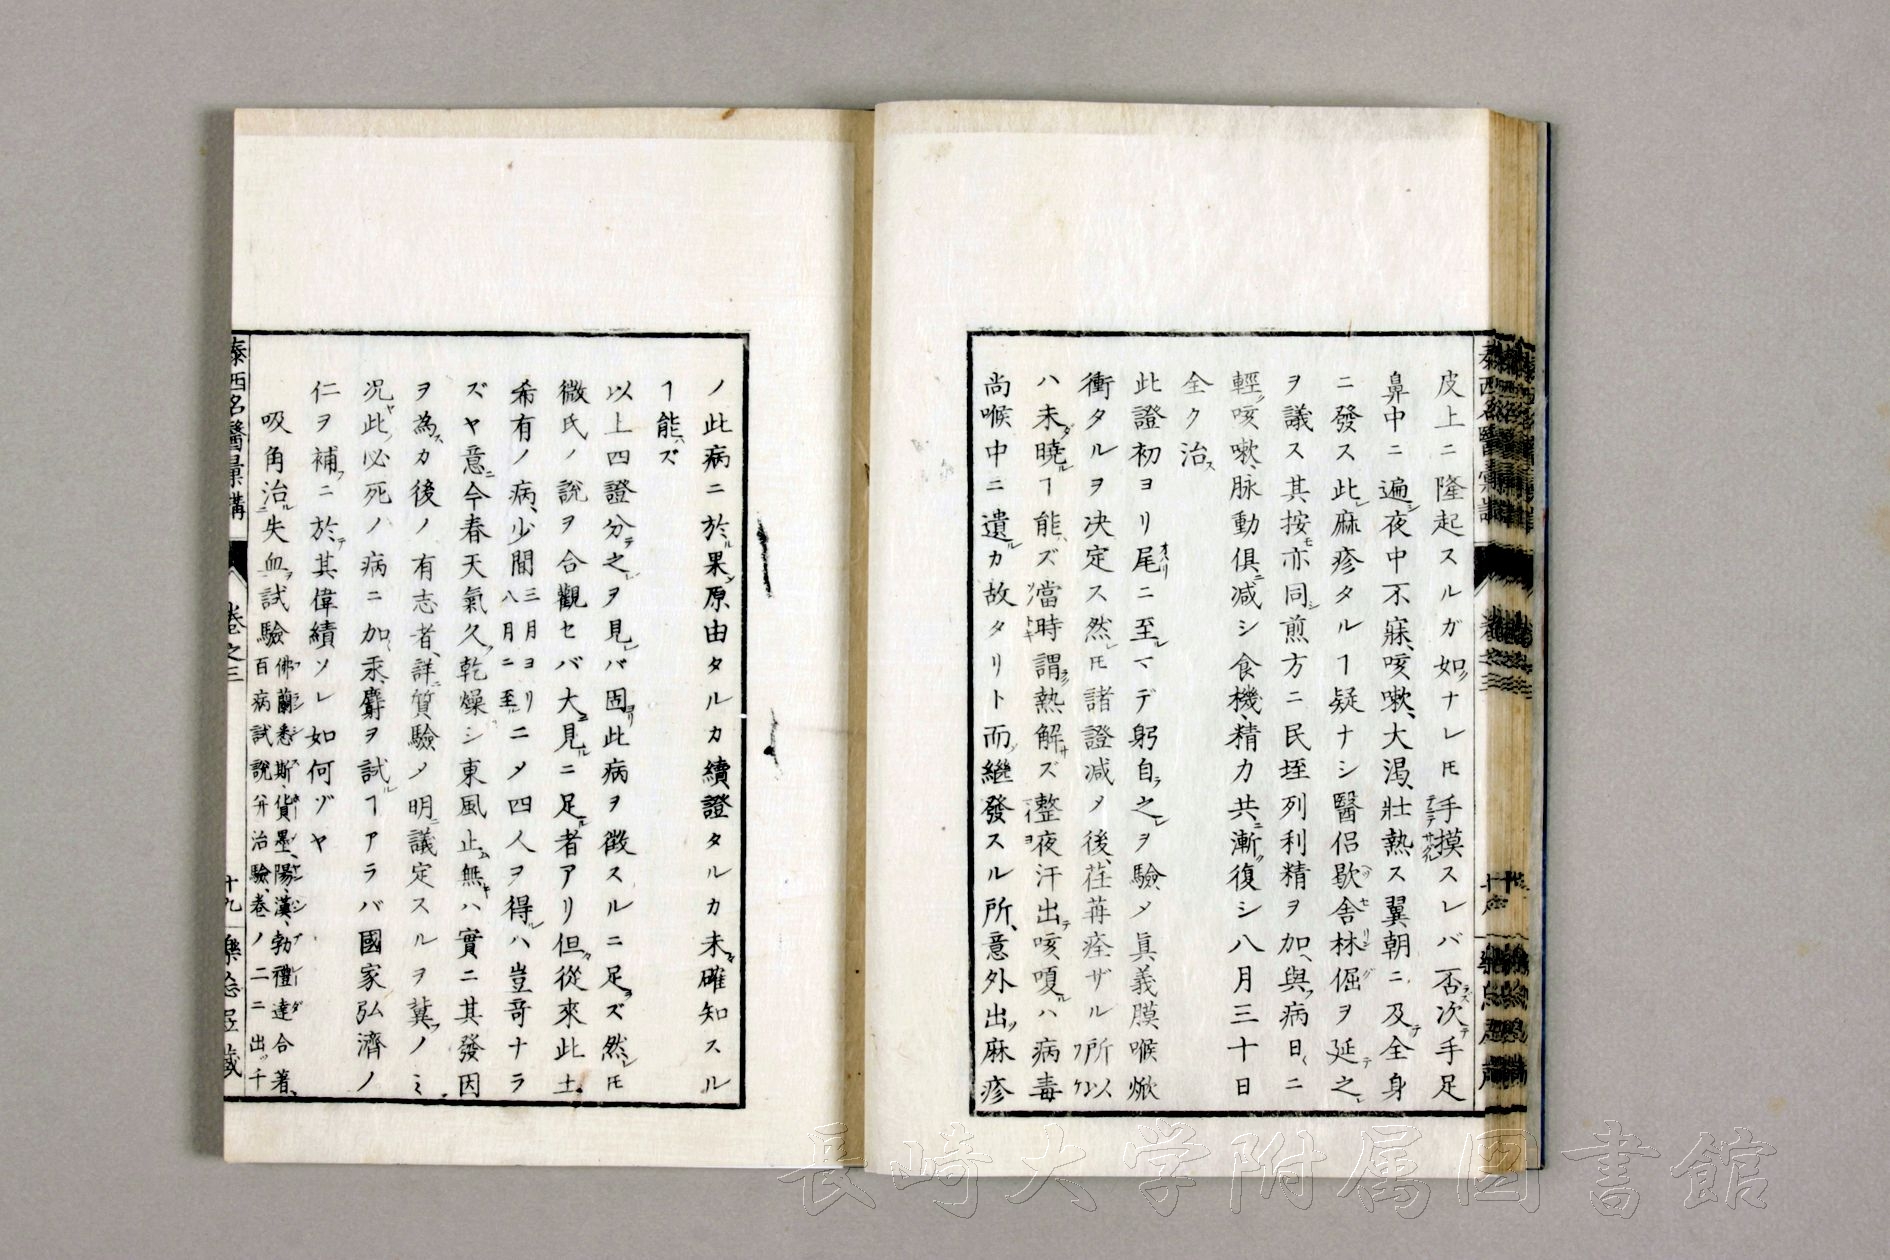 皮上ニ隆起スルガ如クナレ𪜈手摸スレバ否次テ手足
鼻中ニ遍シ夜中不寐、咳嗽、大渇、壮熱ス翼朝ニ及テ全身
ニ發ス此レ麻疹タルヿ疑ナシ醫侶歇舎林倔ヲ延テ之レ
ヲ議ス其按モ亦同シ煎方ニ民垤列利精ヲ加、與フ病日ニ
輕ク咳嗽、脉動俱ニ減シ食機、精力共ニ漸ク復シ八月三十日
全ク治ス
此證初ヨリ尾ニ至レマデ躬自ラ之レヲ驗メ眞義膜喉焮
衝タルヲ决定ス然レ𪜈諸證減メ後、荏苒痊ザル所以
ハ未ダ曉ルヿ能ハズ當時謂ラク熱解サズ整夜汗出テ咳嗄ルハ病毒
尚喉中ニ遺ルカ故タリト而シ繼發スル所、意外出ツ麻疹
ノ此病ニ於ル果シ原由タルカ續證タルカ未タ確知スル
ヿ能ハズ
以上四證分テ之レヲ見レバ固ヨリ此病ヲ徴スルニ足ラズ然レ𪜈
微氏ノ說ヲ合觀セバ大ニ見ルニ足ル者アリ但タ從來此土
希有ノ病、少間三月ヨリ八月ニ至ルニメ四人ヲ得ルハ豈竒ナラ
ズヤ意ニ今春天氣久ク乾燥シ東風止ム無キハ實ニ其發因
ヲ為スカ後ノ有志者、詳ニ質驗メ明ニ議定スルヲ冀フノミ
况ヤ此ノ必死ノ病ニ加ヘ汞麝ヲ試ルヿアラバ國家弘濟ノ
仁ヲ補フニ於テ其偉績ソレ如何ゾヤ
吸角治ルニ失血ヲ試驗佛蘭悉斯、貨墨、陽漢、勃禮達合著、百病試說幷治驗、卷ノ二ニ出ツ千
泰西名醫彙講
卷之三
十九